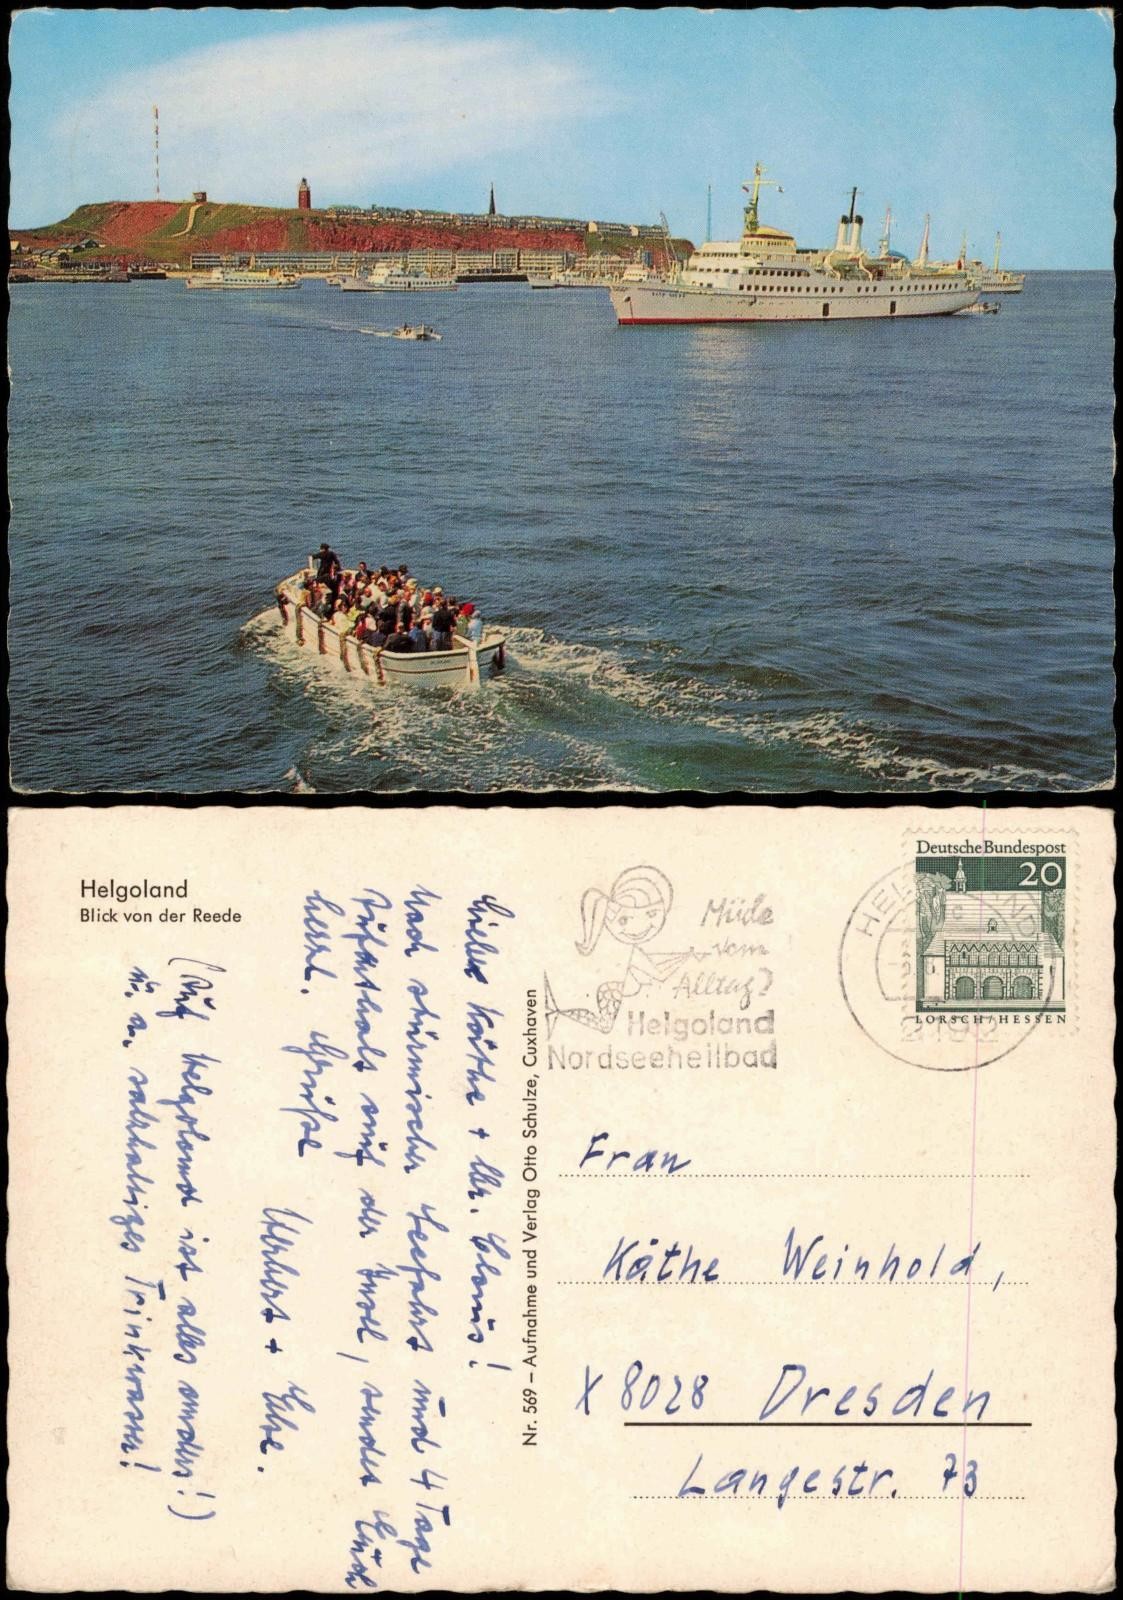 Helgoland
Blick von der Reede
Liebe Käthe + Kr. Claus!
Nach stürmischer Seefahrt und 4 Tage
Aufenthalt auf der Insel, sendet Euch
herzl. Grüße
Herbert + Else.
(Auf Helgoland ist alles anders!)
u. a. salzhaltiges Trinkwasser!
Nr. 569 – Aufnahme und Verlag Otto Schulze, Cuxhaven
Müde
vom
Alltag?
Helgoland
Nordseeheilbad
Deutsche Bundespost
20
LORSCH/HESSEN
2192
Frau
Käthe Weinhold,
X 8028 Dresden
Langestr. 73